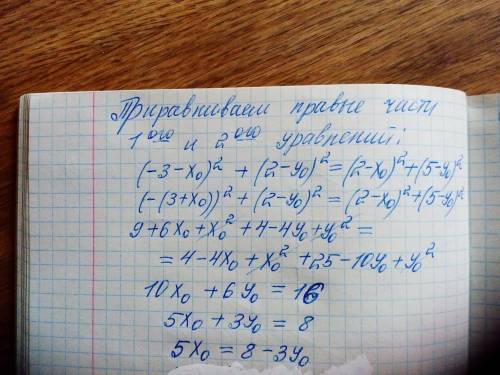 Приравниваем правые части
1ого и 2ого уравнений:
(-3-x₀)² + (2-y₀)² = (2-x₀)² + (5-y₀)²
(-(3+x₀))² + (2-y₀)² = (2-x₀)² + (5-y₀)²
9+6x₀+x₀²+4-4y₀+y₀² =
= 4-4x₀+x₀²+25-10y₀+y₀²
10x₀ + 6y₀ = 16
5x₀ + 3y₀ = 8
5x₀ = 8 - 3y₀